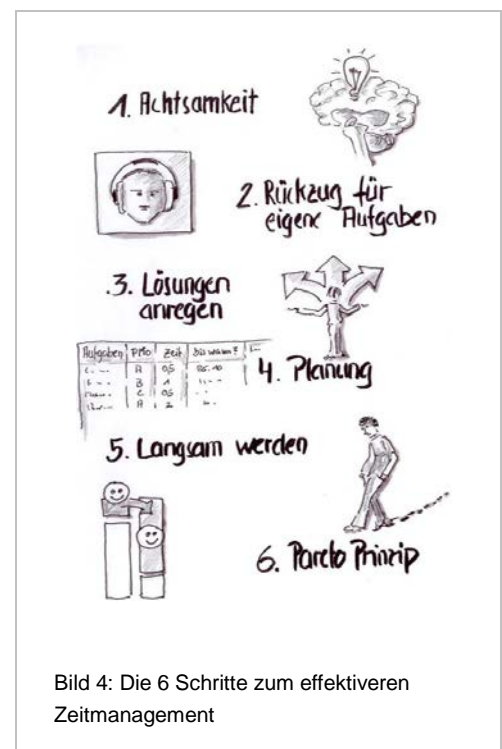 1. Achtsamkeit
2. Rückzug für
eigene Aufgaben
3. Lösungen
anregen
Aufgaben Prio Zeit Bis wann?
A 0,5
B 1
C 0,5
A 2
4. Planung
5. Langsam werden
6. Pareto Prinzip
Bild 4: Die 6 Schritte zum effektiveren
Zeitmanagement